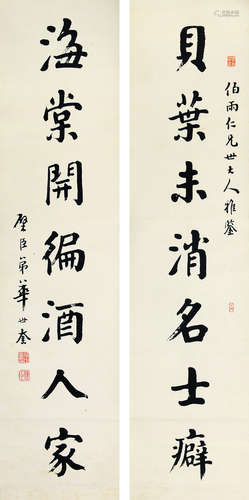 貝葉未消名士癖
伯雨仁兄世大人雅鑒
海棠開徧酒人家
壁臣弟華世奎